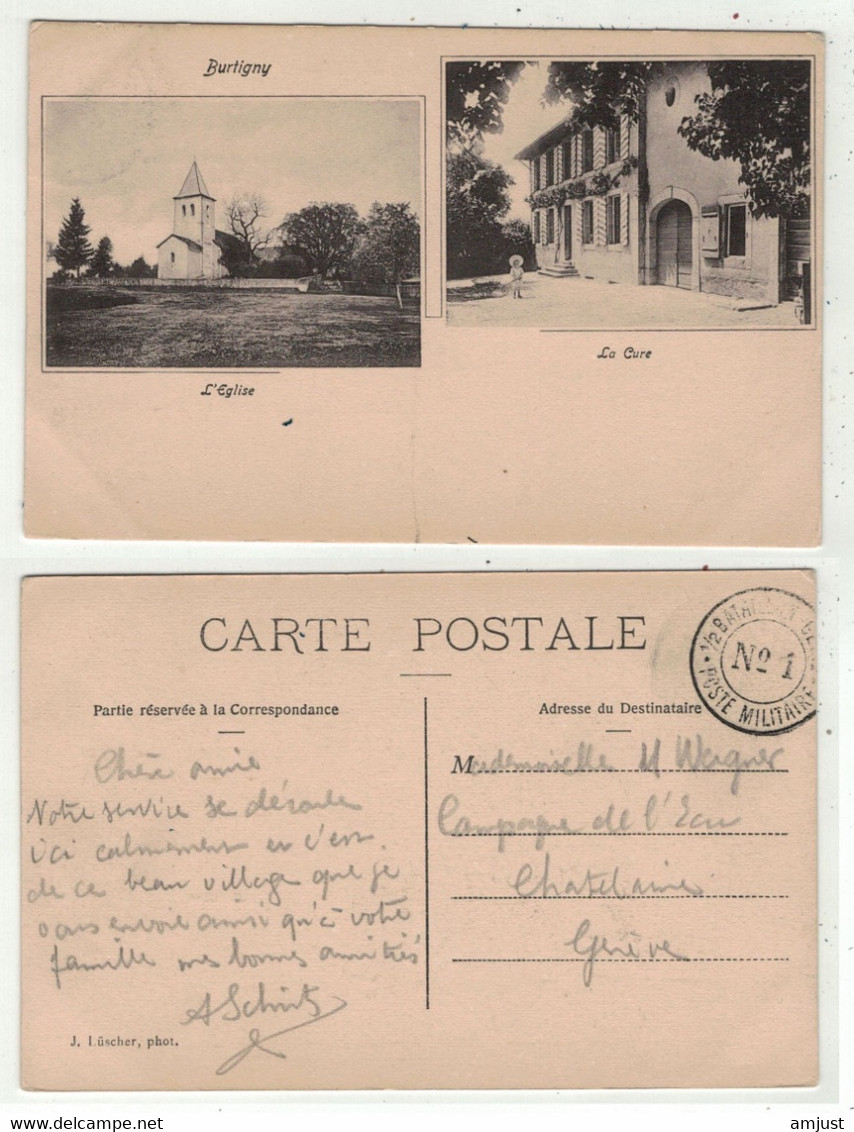 Burtigny
L'Eglise
La Cure
CARTE POSTALE
1/2 BATAILLON
No 1
POSTE MILITAIRE
Partie réservée à la Correspondance
Adresse du Destinataire
Chère amie
Notre service se déroule
ici calmement et c'est
de ce beau village que je
vous envoie ainsi qu'à votre
famille mes bonnes amitiés
Mademoiselle M Wagner
Campagne de l'Ecu
Chatelaine
Genève
J. Lüscher, phot.
amjust